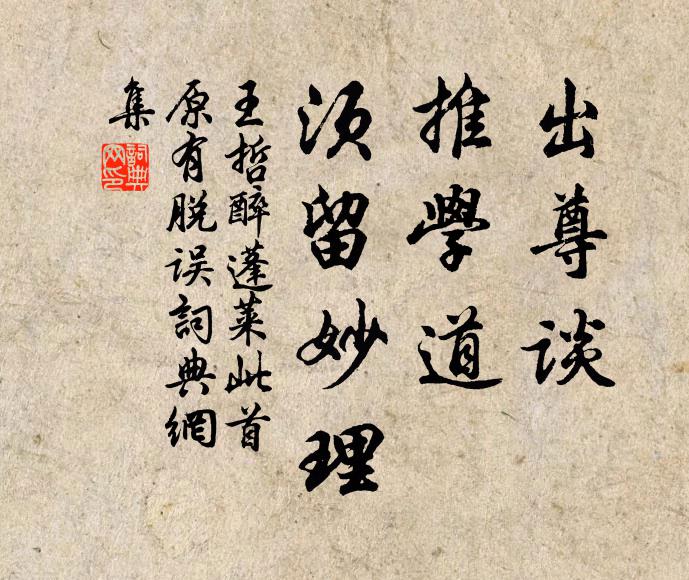 出尊谈
推學道
须留妙理
王哲醉蓬莱此首
原有脱误詞典網
集
詞典
网印